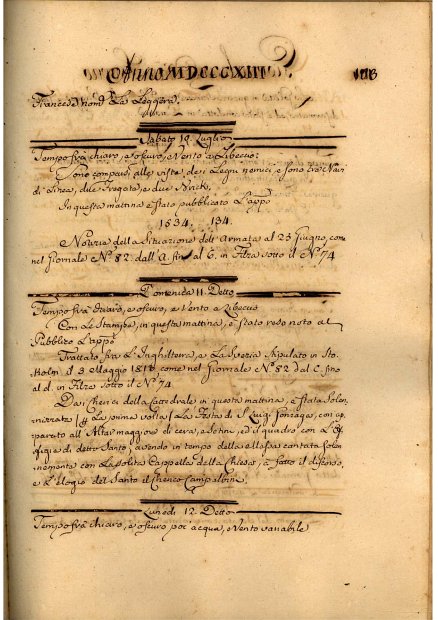 Anno MDCCCXIII.
Francese nom. La Leggera.
Sabato 10 Luglio
Tempo frà chiaro, e oscuro, e Vento a Libeccio:
Sono comparsi alla vista dei Legni nemici e sono tre Navi
di Linea, due Fregate, e due Brick,
In questa mattina è stato pubblicato L'app.
1534. 134.
Notizia della Situazione dell'Armata al 23 Giugno, come
nel Giornale N.º 82. dall'A. fin al C. in Filza sotto il N.º 74
Domenica 11. Detto
Tempo frà chiaro, e oscuro, e Vento a Libeccio
Con Le Stampe, in questa mattina, è stato reso noto al
Pubblico L'app.
Trattato fra L'Inghilterra, e La Svezia Stipulato in Sto-
kolm il 3 Maggio 1813 come nel Giornale N.º 82 dal C. fino
al d. in Filza sotto il N.º 74
Dai Cherici della Cattedrale in questa mattina, è stata Solen-
nizzata p. La prima volta La Festa di S. Luigi Gonzaga, con ap-
parato all'Altar maggiore di cera, e ed il quadro con L'Ef-
figie di detto Santo, avendo in tempo della Messa cantata Solen-
nemente con La solita Cappella della Chiesa, fatto il discorso,
e L'elogio del Santo il Cherico
Lunedì 12. Detto
Tempo frà chiaro, e oscuro poi acqua, e Vento variabile